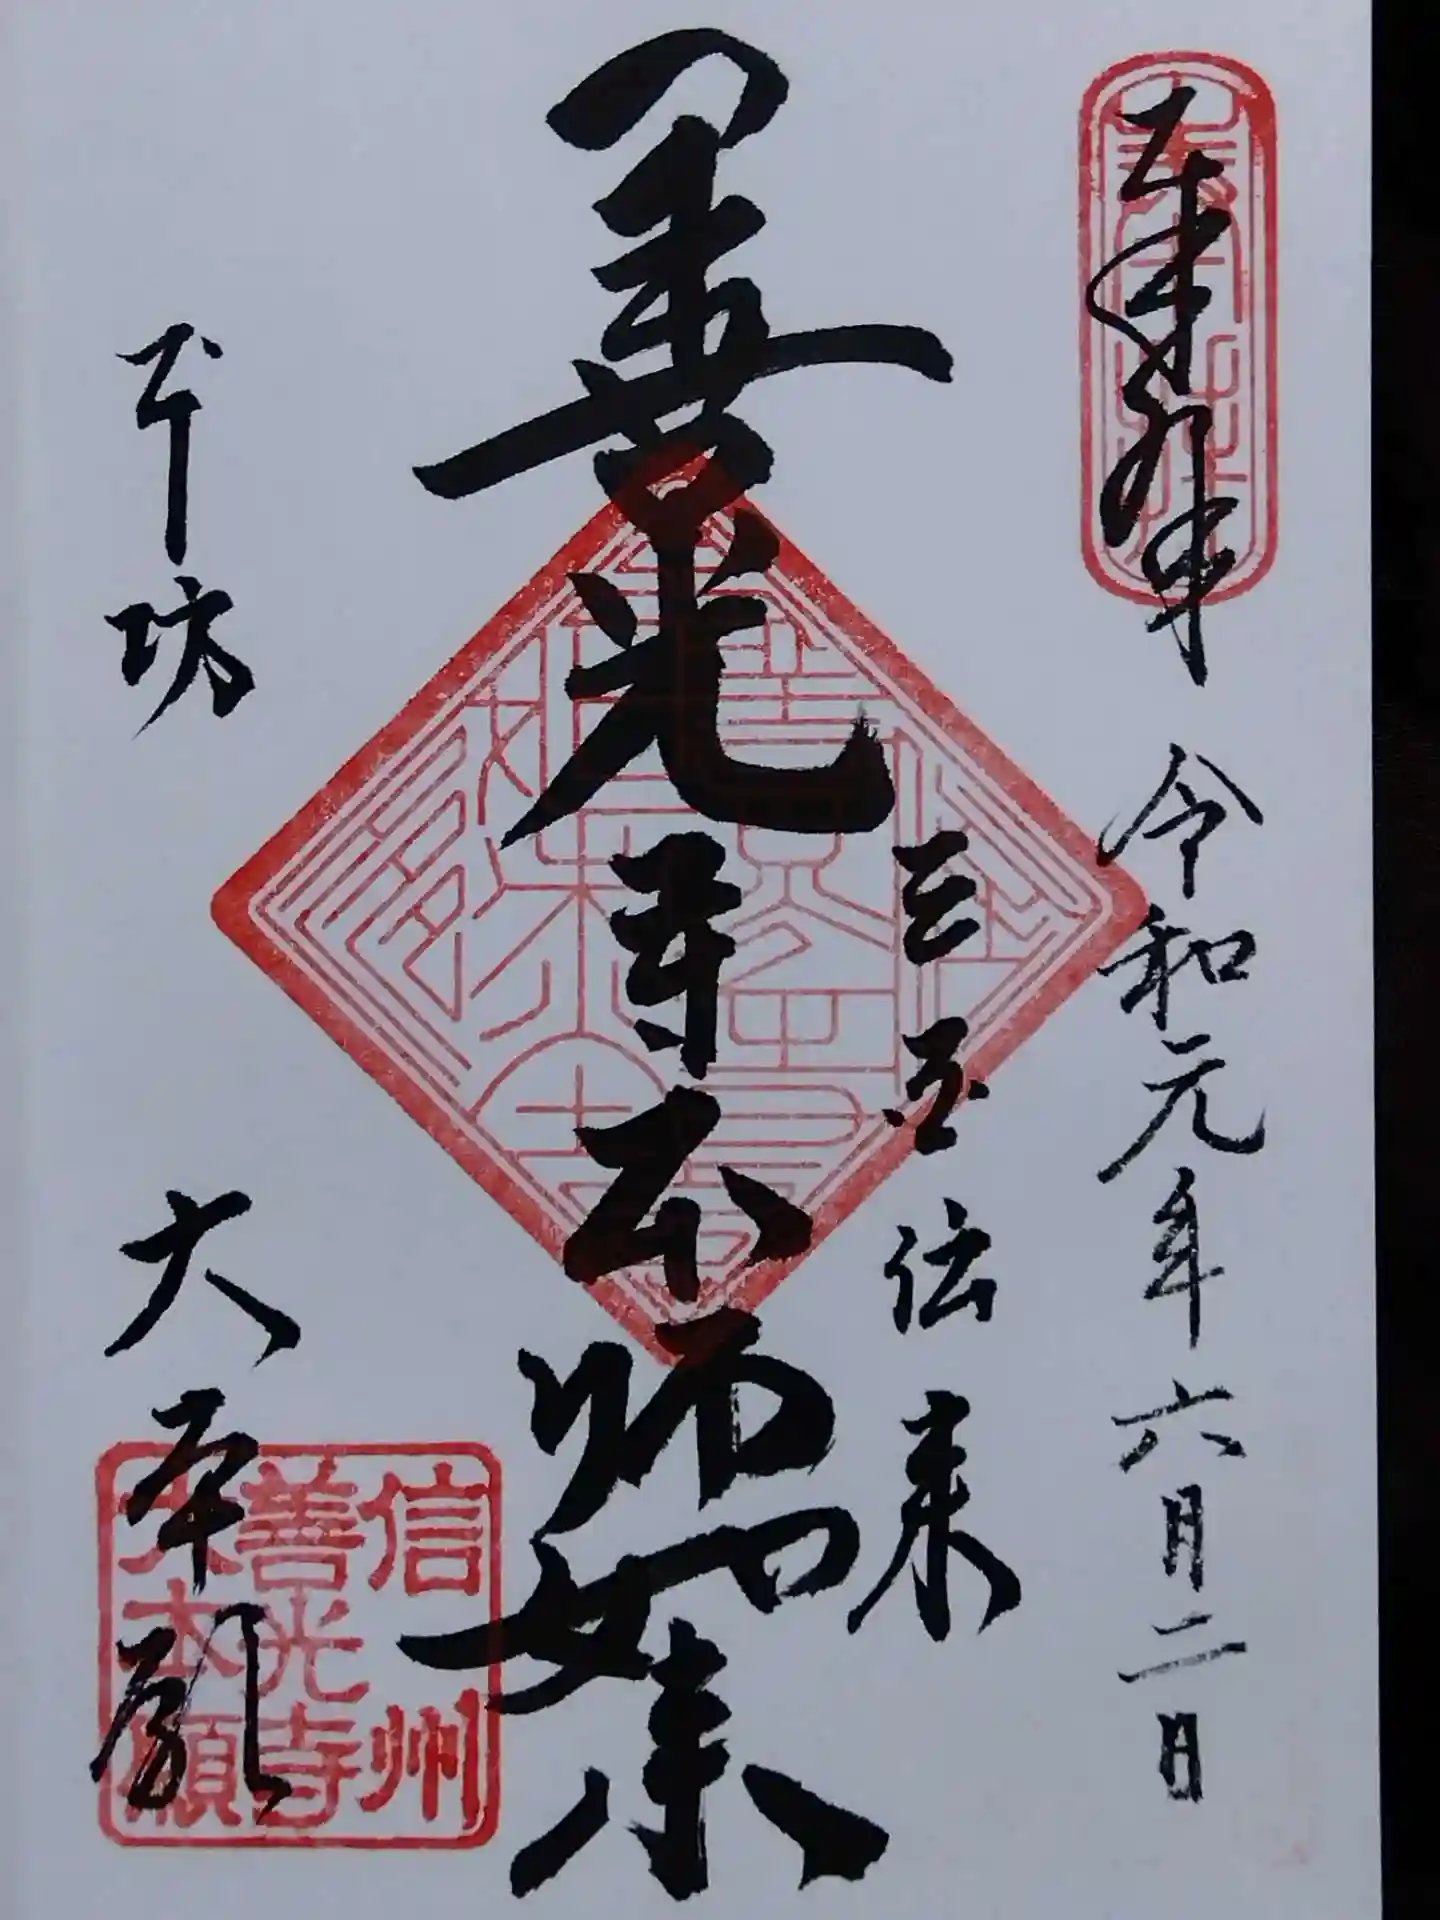 奉拝 令和元年六月二日
三国伝来
善光寺本師如来
本坊 大本願
信州
善光寺
大本願